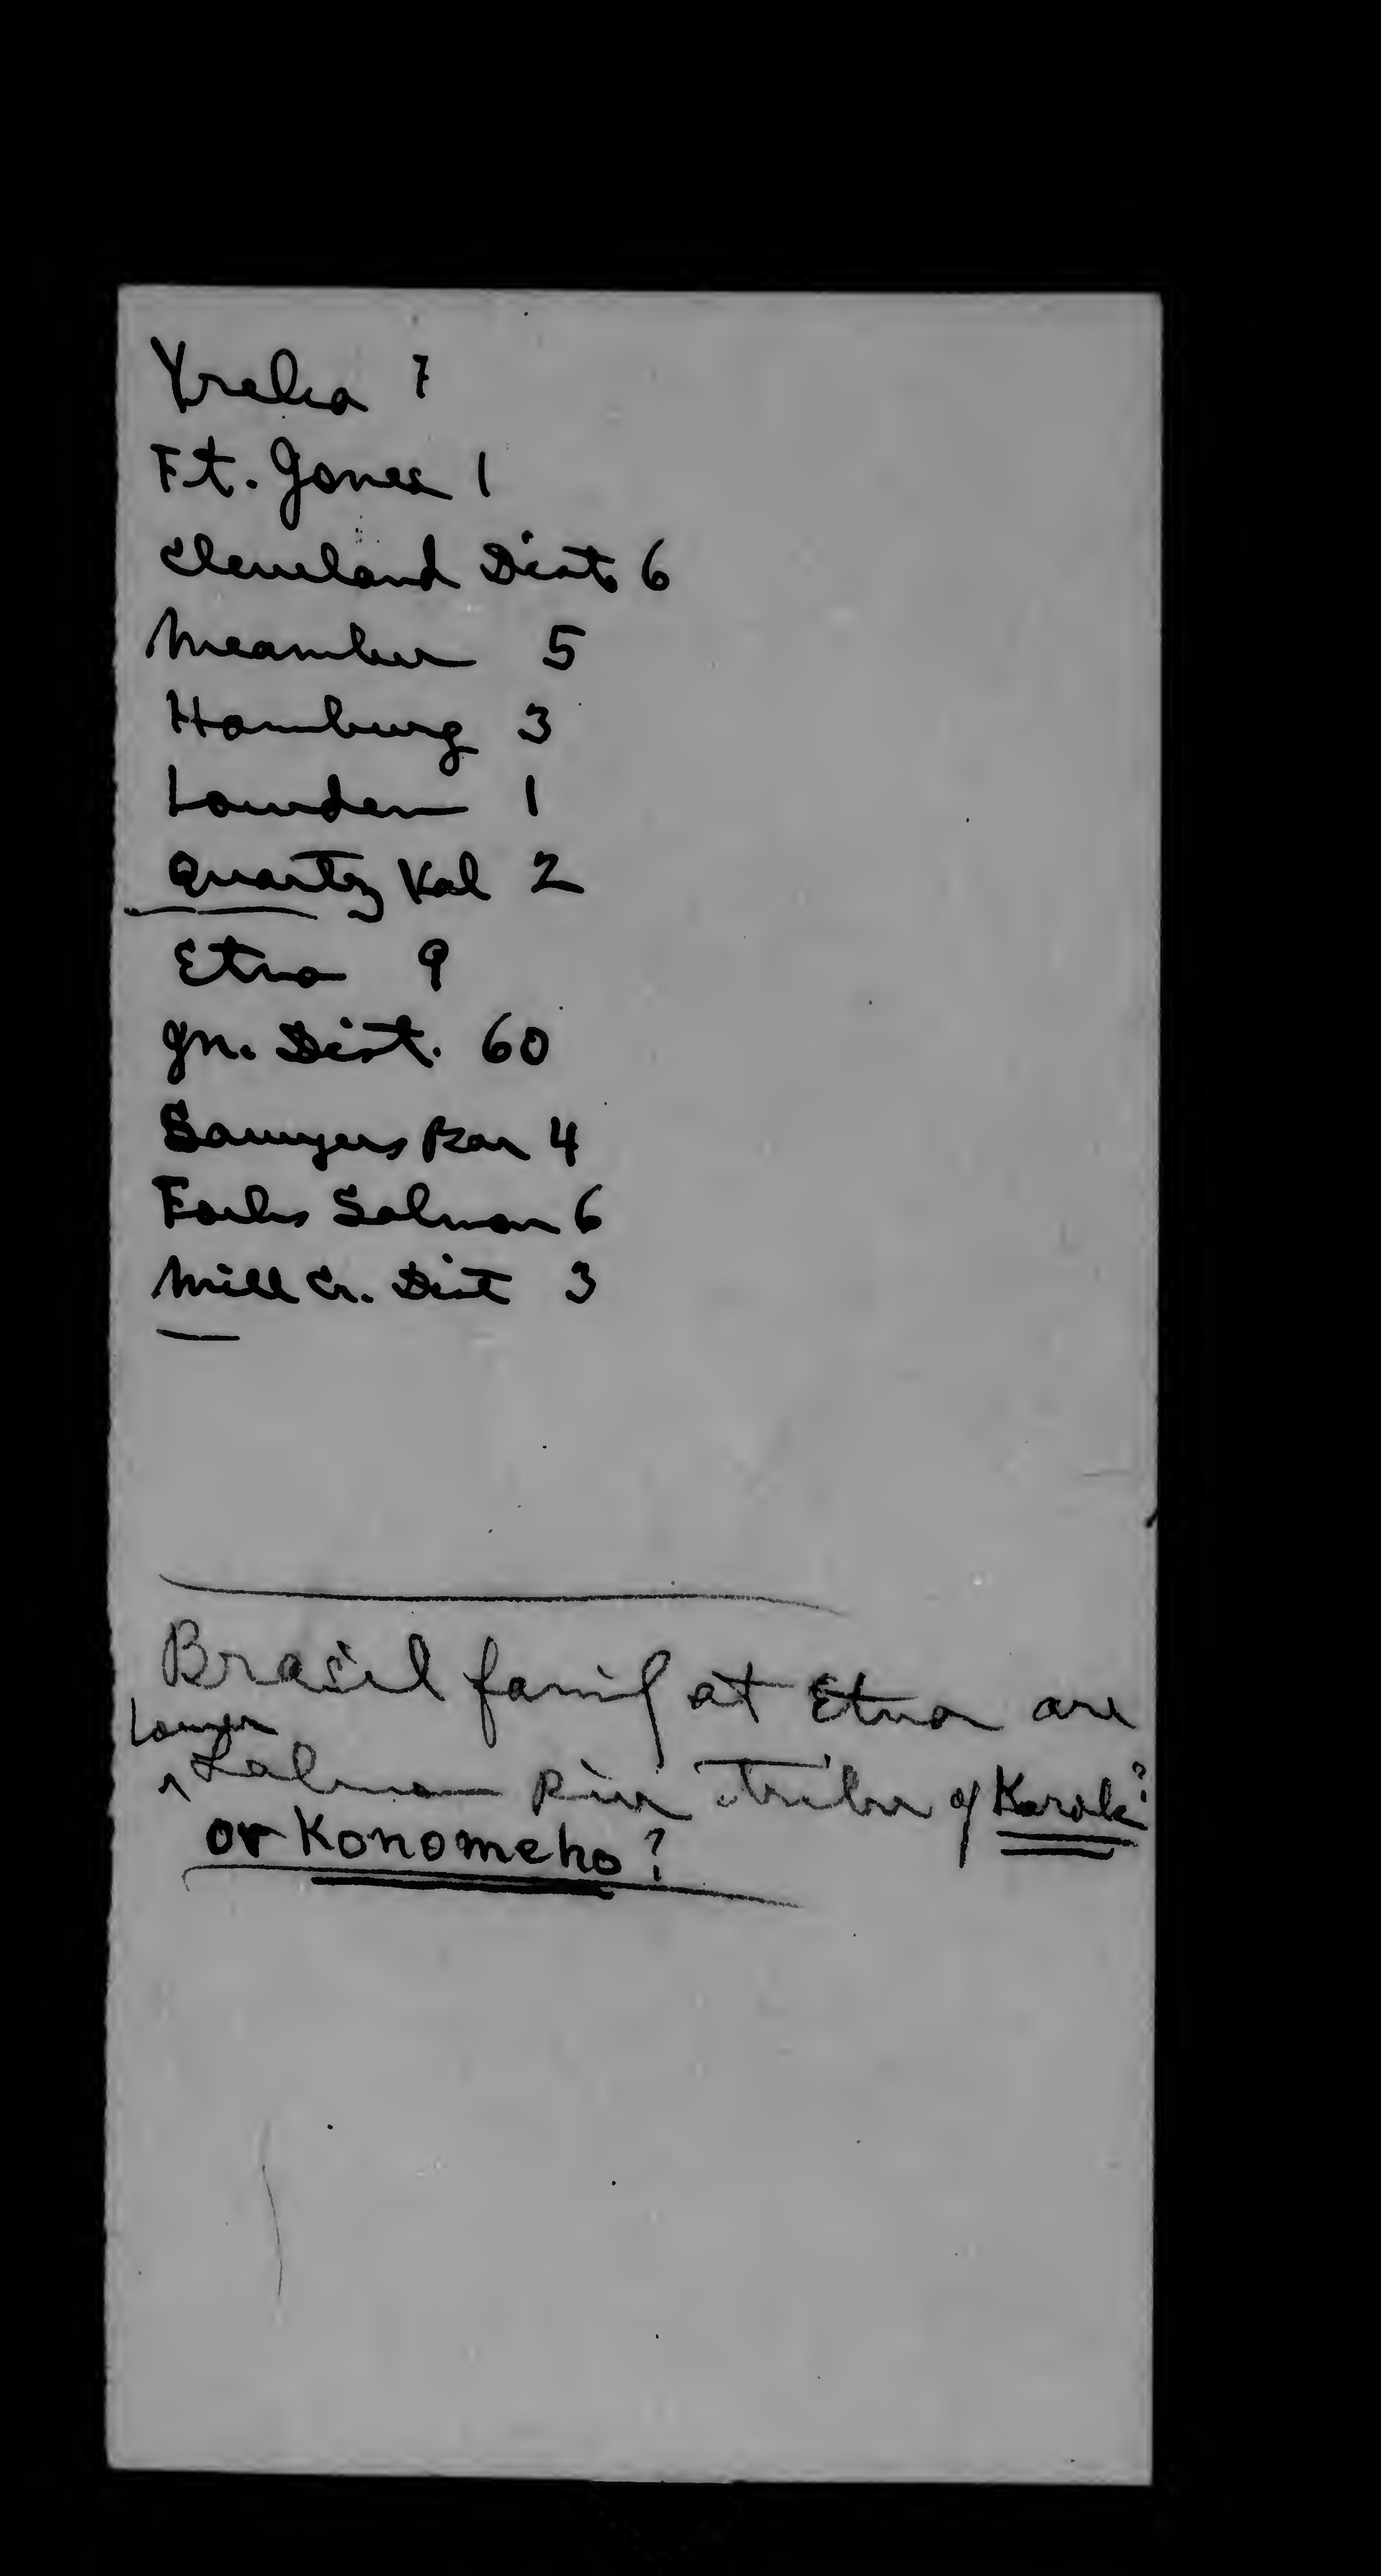 Yreka 7
Ft. Jones 1
Cleveland Dist. 6
Meamber 5
Hamburg 3
Lowden 1
Quartz Val 2
Etna 9
Jn. Dist. 60
Sawyers Bar 4
Forks Salmon 6
Mill Cr. Dist 3
Brasiel family at Etna are
Lower
^ Salmon River tribe of Karok?
or Konomeho?